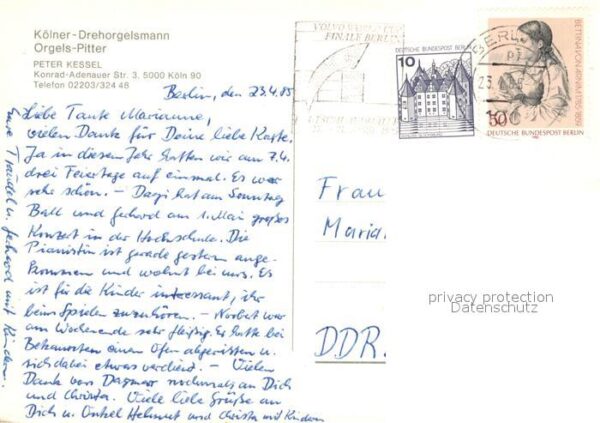 Kölner-Drehorgelsmann
Orgels-Pitter
PETER KESSEL
Konrad-Adenauer Str. 3. 5000 Köln 90
Telefon 02203/324 48
Berlin, den 23.4.85
Liebe Tante Marianne,
vielen Dank für Deine liebe Karte.
Ja in diesem Jahr hatten wir am 7.4.
drei Feiertage auf einmal. Es war
sehr schön. – Dagi hat am Sonntag
Ball und Gerhard am 1. Mai großes
Konzert in der Hochschule. Die
Pianistin ist gerade gestern ange-
kommen und wohnt bei uns. Es
ist für die Kinder interessant, ihr
beim Spielen zuzuhören. – Norbert war
am Wochenende sehr fleißig. Er hatte bei
Bekannten einen Ofen abgerissen u.
sich dabei etwas verdient. – Vielen
Dank von Dagmar nochmals an Dich
und Christa. Viele liebe Grüße an
Dich u. Onkel Helmut und Christa mit Kindern
Eure Traudel u. Gerhard mit Kindern.
VOLVO WORLD CUP
FINALE BERLIN
10
DEUTSCHE BUNDESPOST BERLIN
BERLIN
23.
BETTINA VON ARNIM 1785-1859
50
DEUTSCHE BUNDESPOST BERLIN
Frau
Maria
DDR.
privacy protection
Datenschutz